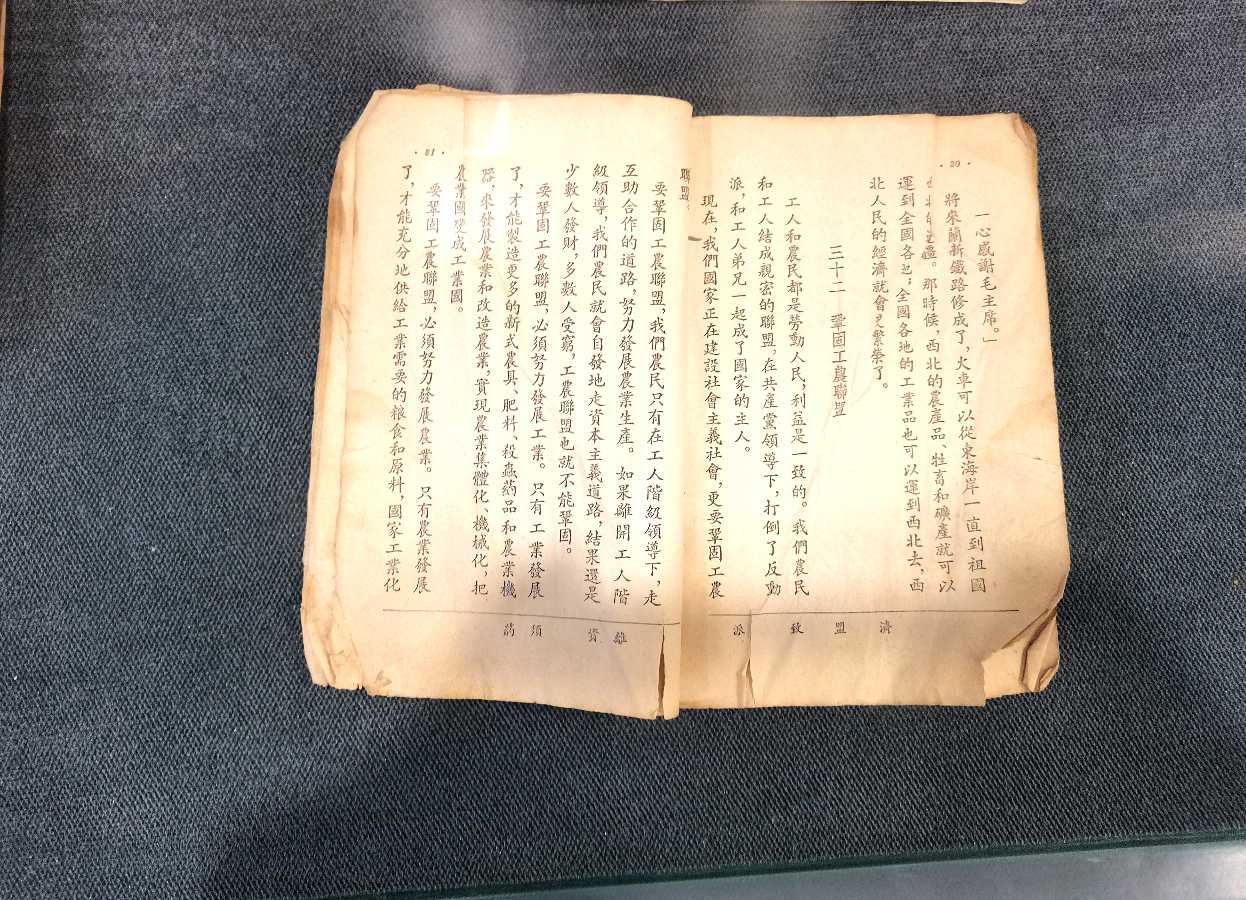 · 30 ·
一心感謝毛主席。」
將來蘭新鐵路修成了,火車可以從東海岸一直到祖國
的邊疆。那時候,西北的農產品、牲畜和礦產就可以
運到全國各地;全國各地的工業品也可以運到西北去,西
北人民的經濟就會更繁榮了。
三十二 鞏固工農聯盟
工人和農民都是勞動人民,利益是一致的。我們農民
和工人結成親密的聯盟,在共產黨領導下,打倒了反動
派,和工人弟兄一起成了國家的主人。
現在,我們國家正在建設社會主義社會,更要鞏固工農
濟
盟
致
派
· 31 ·
聯盟。
要鞏固工農聯盟,我們農民只有在工人階級領導下,走
互助合作的道路,努力發展農業生產。如果離開工人階
級領導,我們農民就會自發地走資本主義道路,結果還是
少數人發財,多數人受窮,工農聯盟也就不能鞏固。
要鞏固工農聯盟,必須努力發展工業。只有工業發展
了,才能製造更多的新式農具、肥料、殺蟲葯品和農業機
器,來發展農業和改造農業,實現農業集體化、機械化,把
農業國變成工業國。
要鞏固工農聯盟,必須努力發展農業。只有農業發展
了,才能充分地供給工業需要的粮食和原料,國家工業化
離
資
須
葯